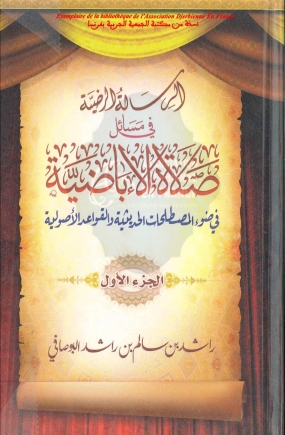 Exemplaire de la bibliothèque de l'Association Djerbienne En France
نسخة من مكتبة الجمعية الجربية بفرنسا
الرسالة الرضية
في مسائل
صلاة الإباضية
في ضوء المصطلحات الحديثية والقواعد الأصولية
الجزء الأول
راشد بن سالم بن راشد البوصافي